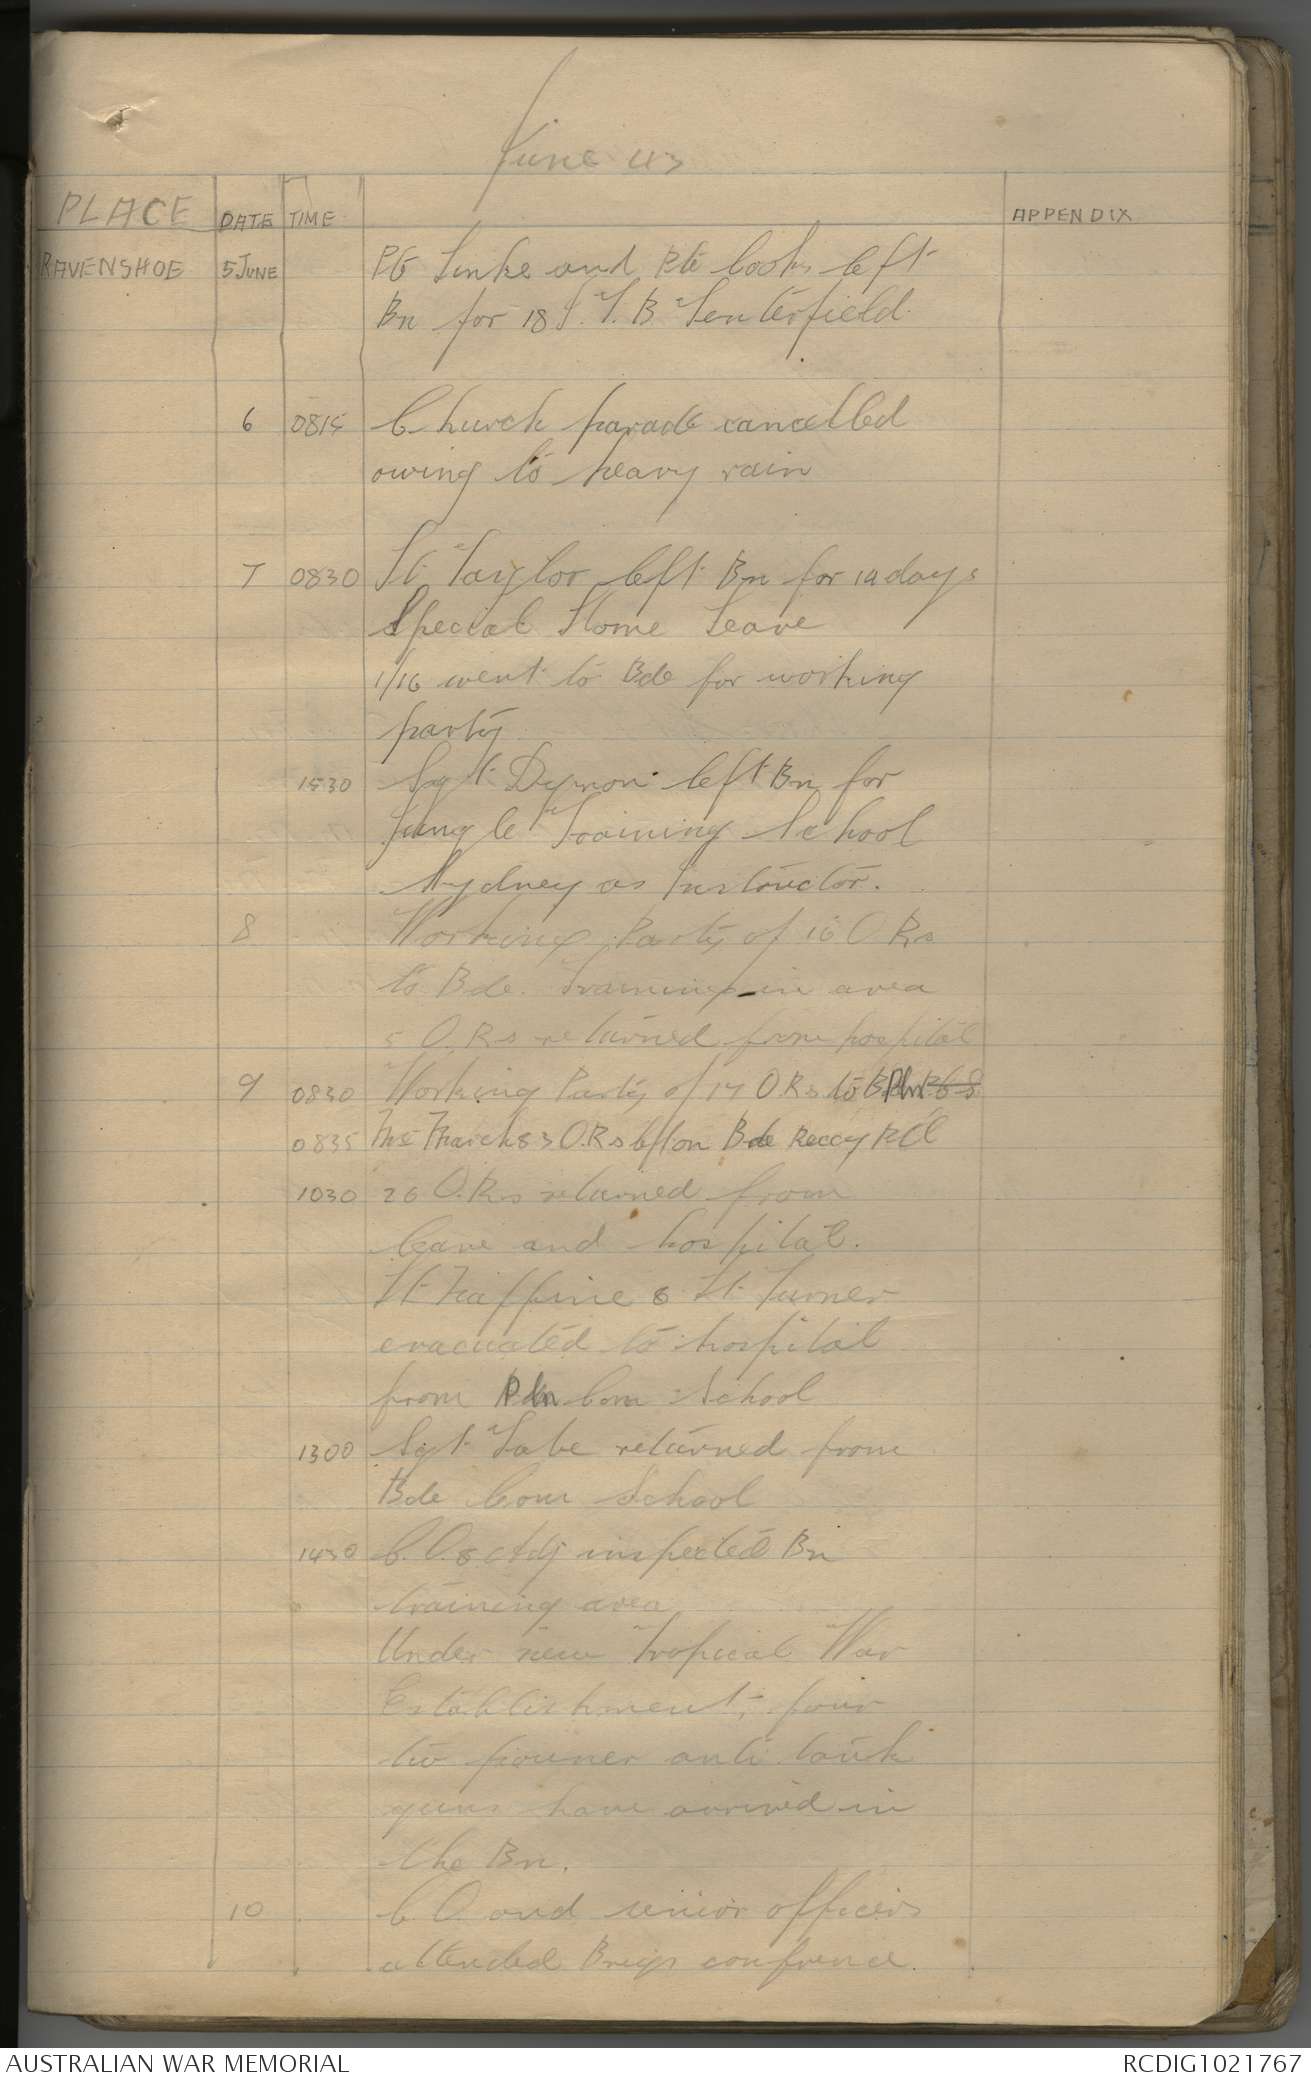 June 43
PLACE DATE TIME APPENDIX
RAVENSHOE 5 JUNE Pte Linke and Pte Cooks left
Bn for 18 I.T.B Tenterfield
6 0815 Church parade cancelled
owing to heavy rain
7 0830 Lt Taylor left Bn for 14 days
Special Home Leave
1/16 went to Bde for working
party
1530 Sgt Dymon left Bn for
Jungle Training School
Sydney as Instructor.
8 Working Party of 16 O.Rs
to Bde. Training in area
5 O.Rs returned from hospital
9 0830 Working Party of 17 O.Rs to
0835 & 3 O.Rs left on Bde Reccy
1030 26 O.Rs returned from
leave and hospital.
Lt & Lt Turner
evacuated to hospital
from Com School
1300 Sgt returned from
Bde Com School
1430 C.O. & Adj inspected Bn
training area
Under new Tropical War
Establishment, four
two pouner anti tank
guns have arrived in
the Bn.
10 C.O. and senior officers
attended Brigs confrence.
AUSTRALIAN WAR MEMORIAL RCDIG1021767